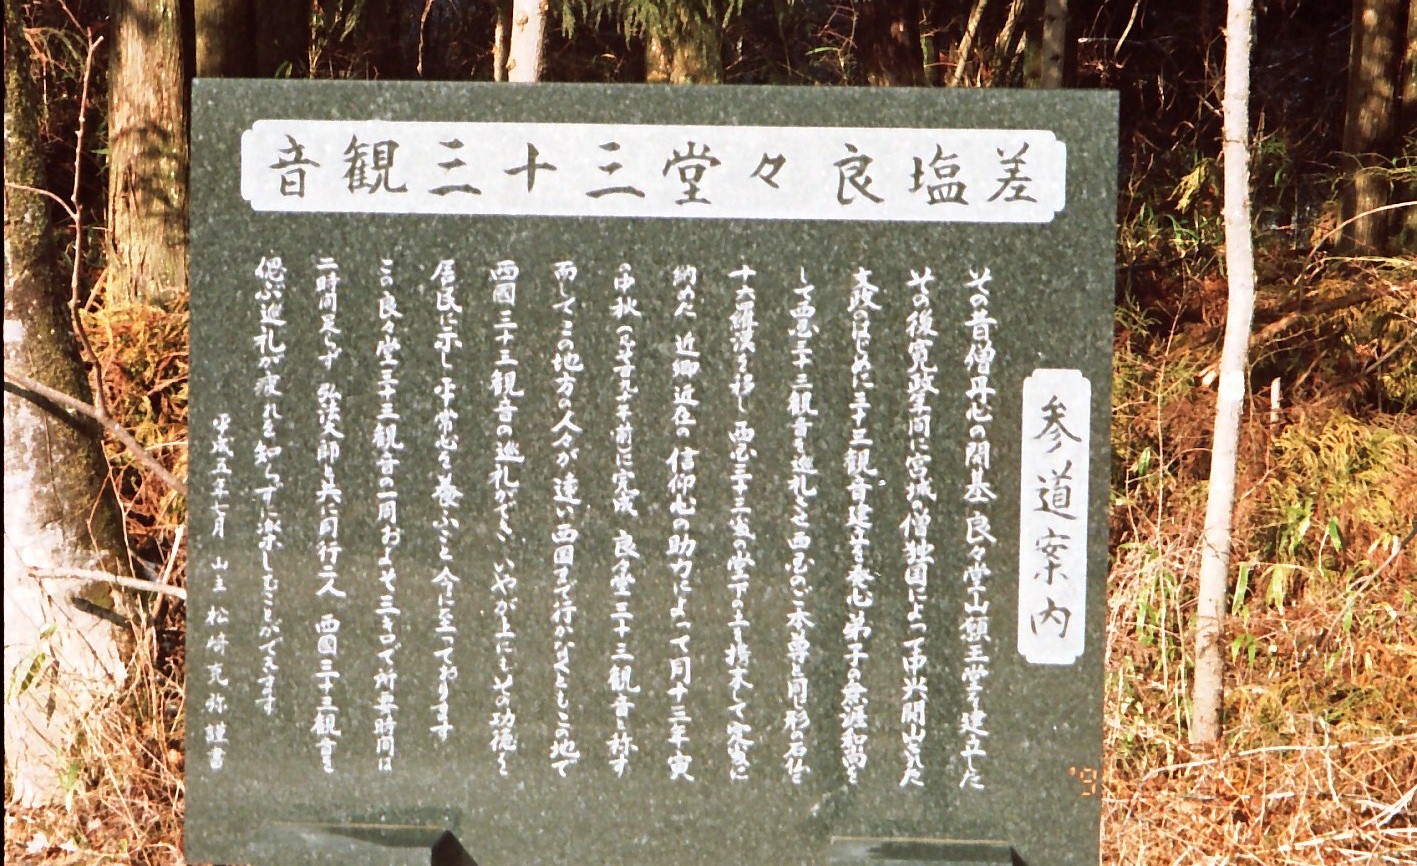 差塩良々堂三十三観音
参道案内
その昔僧丹心の開基 良々堂山頂三堂を建立した
その後寛政年間に宮城の僧独国によって中興開山された
文政のはじめに三十三観音建立を発心 弟子の無涯和尚を
して西国三十三観音を巡礼させ西国のご本尊と同じ形の石仏
十六羅漢を移し 西国三十三霊の堂下の土を持来して完全に
納めた 近郷近在の信仰心の助力によって同十三年寅
の中秋 年前に完成 良々堂三十三観音と称す
而してこの地方の人々が遠い西国まで行かなくともこの地で
西國三十三観音の巡礼ができ いやが上にもその功徳を
居民に示し 平常心を養ふこと今に至っております
この良々堂三十三観音の一周およそ三キロで所要時間は
二時間足らず 弘法大師と共に同行二人 西國三十三観音を
偲ぶ巡礼が疲れを知らずに楽しむことができます
平成五年七月 山主 松崎 弥 謹書
'9